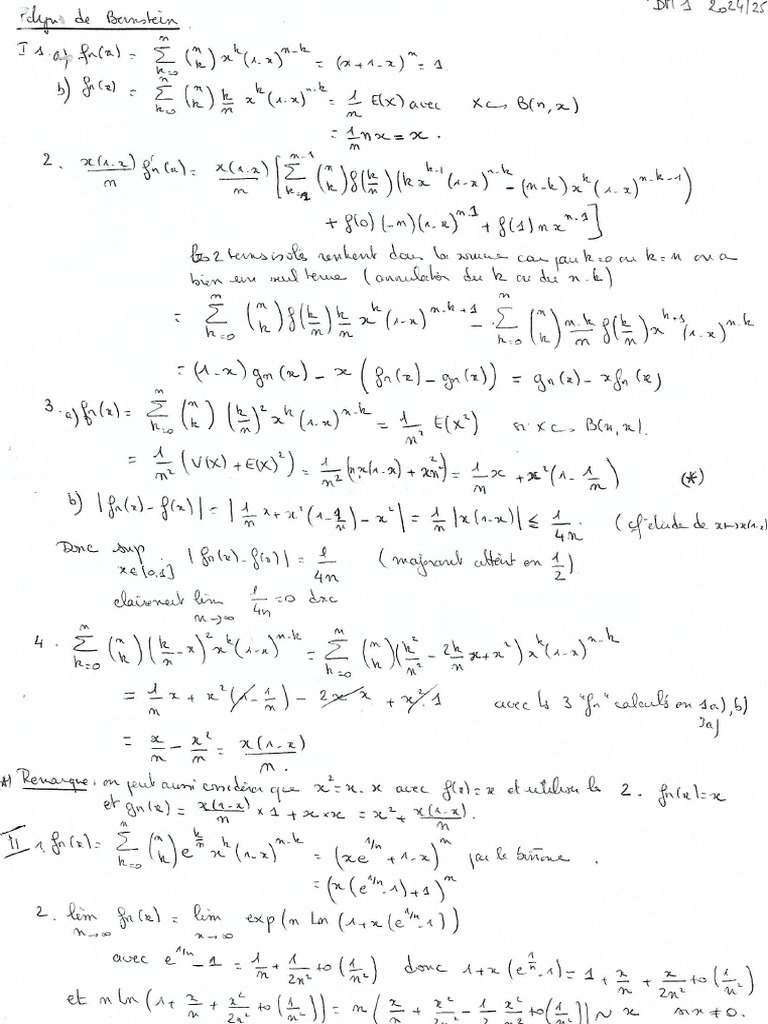 DM 1 2024/25
Polyn. de Bernstein.
I 1. a) fn(x) = Σ_{k=0}^{n} (n k) x^k (1-x)^{n-k} = (x+1-x)^n = 1.
b) fn(x) = Σ_{k=0}^{n} (n k) k/n x^k (1-x)^{n-k} = 1/n E(X) avec X ↪ B(n,x)
= 1/n nx = x.
2. x(1-x)/n f'n(x) = x(1-x)/n [Σ_{k=1}^{n-1} (n k) f(k/n) (k x^{k-1} (1-x)^{n-k} - (n-k) x^k (1-x)^{n-k-1})
+ f(0) (-n)(1-x)^{n-1} + f(1) n x^{n-1}]
les 2 termes isolés rentrent dans la somme car pour k=0 ou k=n on a
bien un seul terme (annulation du k ou du n-k)
= Σ_{k=0}^{n} (n k) f(k/n) k/n x^k (1-x)^{n-k+1} - Σ_{k=0}^{n} (n k) n-k/n f(k/n) x^{k+1} (1-x)^{n-k}
= (1-x) gn(x) - x (fn(x) - gn(x)) = gn(x) - x fn(x)
3. a) fn(x) = Σ_{k=0}^{n} (n k) (k/n)^2 x^k (1-x)^{n-k} = 1/n² E(X²) si X ↪ B(n,x).
= 1/n² (V(X) + E(X)²) = 1/n² (nx(1-x) + x²n²) = 1/n x + x² (1 - 1/n) (*)
b) |fn(x) - f(x)| = |1/n x + x² (1 - 1/n) - x²| = 1/n |x(1-x)| ≤ 1/4n. (cf étude de x↦x(1-x)
Donc sup_{x∈[0,1]} |fn(x) - f(x)| = 1/4n (majorant atteint en 1/2)
clairement lim_{n→∞} 1/4n = 0 donc
4. Σ_{k=0}^{n} (n k) (k/n - x)² x^k (1-x)^{n-k} = Σ_{k=0}^{n} (n k) (k²/n² - 2k/n x + x²) x^k (1-x)^{n-k}
= 1/n x + x² (1 - 1/n) - 2x x + x².1 avec les 3 "fn" calculés en 1a), b)
3a)
= x/n - x²/n = x(1-x)/n.
*) Remarque : on peut aussi considérer que x² = x.x avec f(x) = x et utiliser le 2. fn(x) = x
et gn(x) = x(1-x)/n × 1 + x × x = x² + x(1-x)/n.
II 1. fn(x) = Σ_{k=0}^{n} (n k) e^{k/n} x^k (1-x)^{n-k} = (x e^{1/n} + 1-x)^n par le binôme.
= (x (e^{1/n} - 1) + 1)^n
2. lim_{n→∞} fn(x) = lim_{n→∞} exp(n ln (1 + x (e^{1/n} - 1))
avec e^{1/n} - 1 = 1/n + 1/2n² + o(1/n²) donc 1 + x (e^{1/n} - 1) = 1 + x/n + x/2n² + o(1/n²)
et n ln (1 + x/n + x²/2n² + o(1/n²)) = n (x/n + x²/2n² - 1/2 x²/n² + o(1/n²)) ~ x si x ≠ 0.